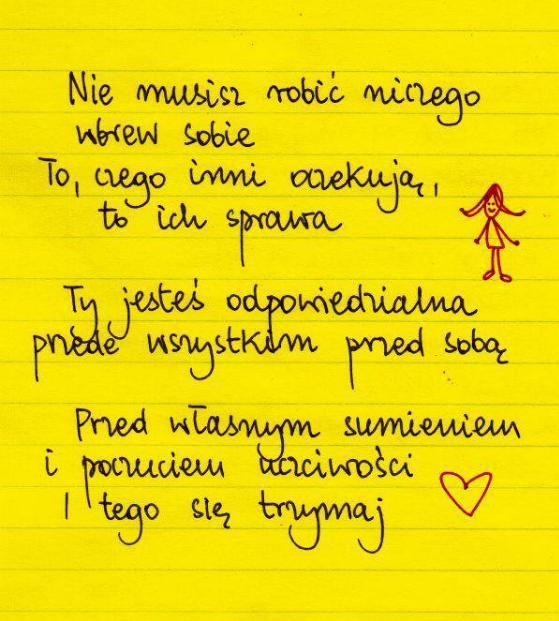 Nie musisz robić niczego
wbrew sobie
To, czego inni oczekują,
to ich sprawa
Ty jesteś odpowiedzialna
przede wszystkim przed sobą
Przed własnym sumieniem
i poczuciem uczciwości
I tego się trzymaj